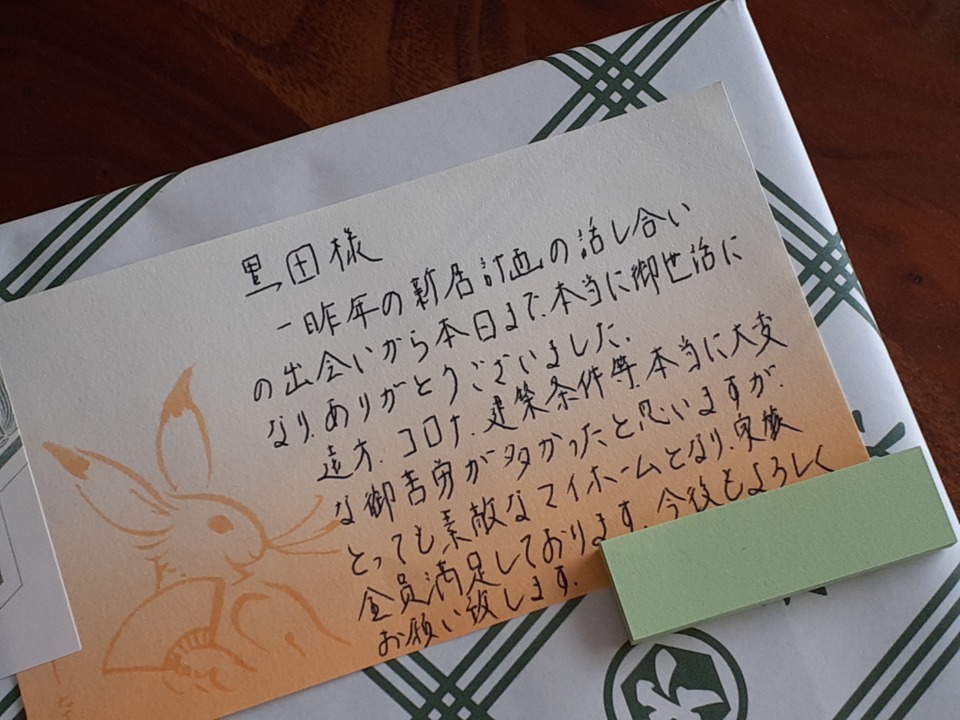 黒田様
一昨年の新居計画の話し合い
の出会いから本日まで、本当に御世話に
なり、ありがとうございました。
遠方、コロナ、建築条件等、本当に大変
な御苦労が多かったと思いますが、
とっても素敵なマイホームとなり、家族
全員満足しております。今後もよろしく
お願い致します。